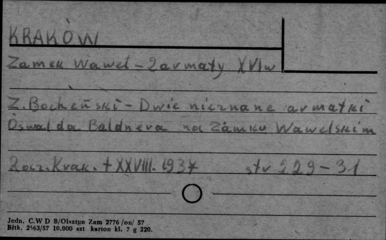 KRAKÓW
Zamek Wawel - 2 armaty XVI w
Z. Bocheński - Dwie nieznane armatki
Oswalda Baldnera na Zamku Wawelskim
Rocz. Krak. t XXVIII. 1937 str 229-31
Jedn. C. W D B/Olsztyn Zam 2776 /on/ 57
Bltk. 2163/57 10.000 szt karton kl. 7 g 220.